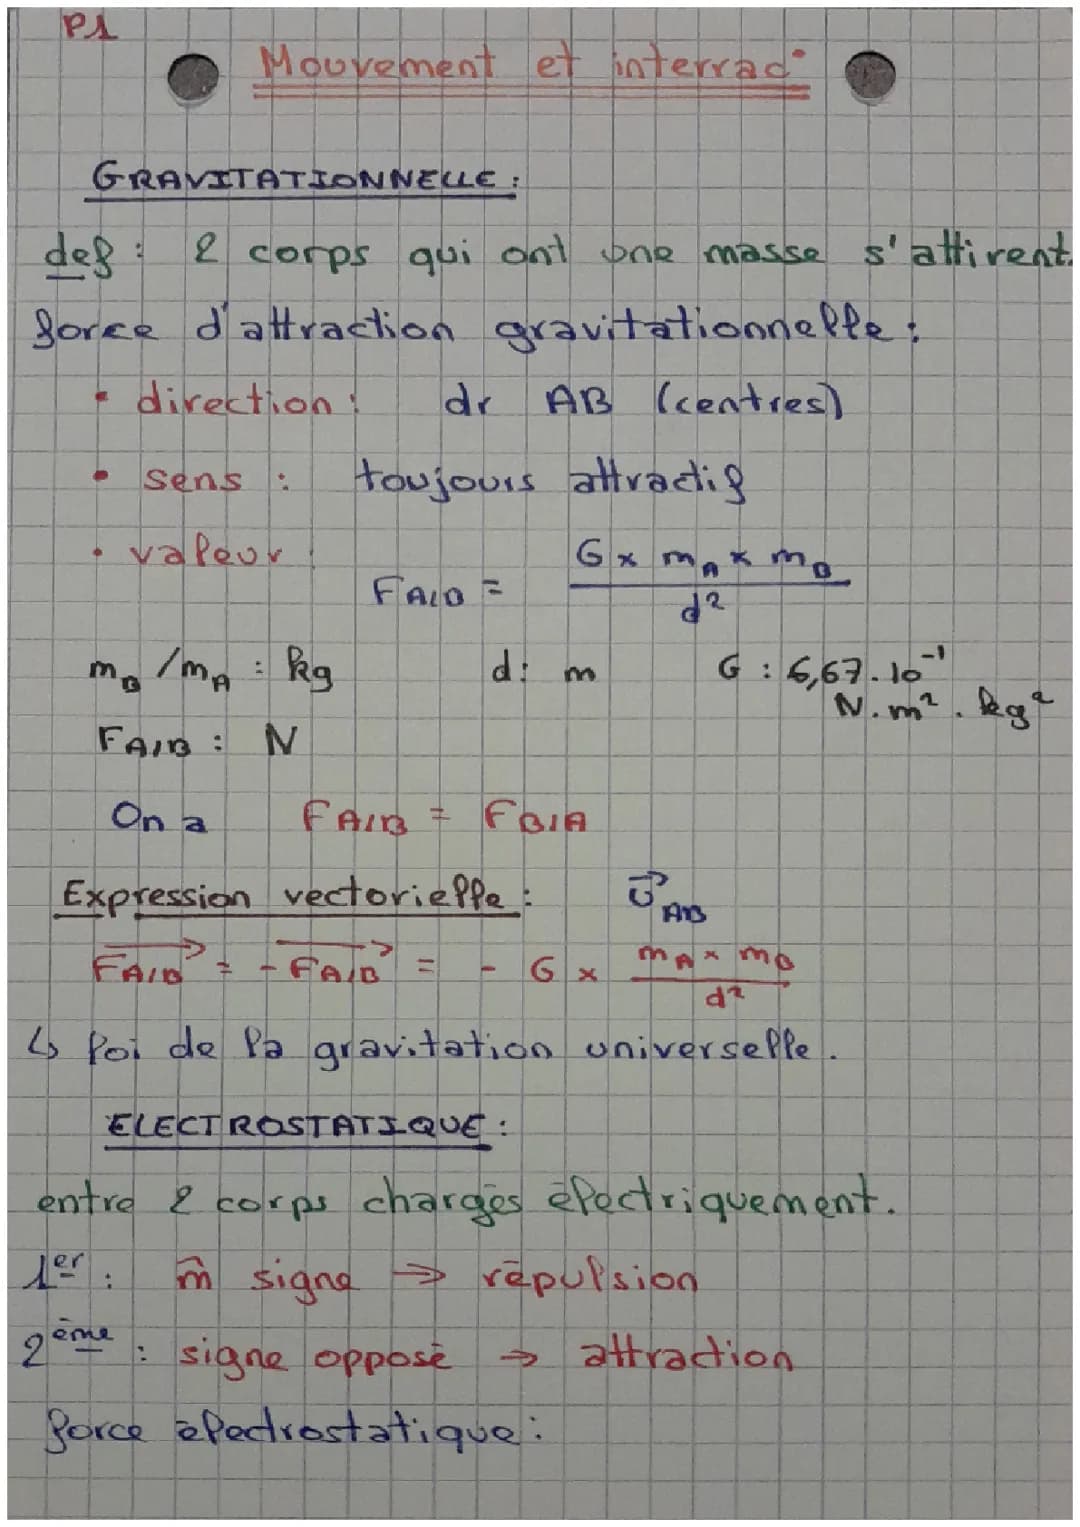 P1
Mouvement et interrac°
GRAVITATIONNELLE :
def : 2 corps qui ont une masse s'attirent.
force d'attraction gravitationnelle :
• direction : dr AB (centres)
• sens : toujours attractif
• valeur : F A/B = G x mA x mB / d²
mB / mA : kg d : m G : 6,67.10⁻¹
N.m².kg²
FA/B : N
On a FA/B = FB/A
Expression vectorielle : U⃗AB
F⃗A/B = - F⃗A/B = - G x mA x mB / d²
↳ loi de la gravitation universelle.
ELECTROSTATIQUE :
entre 2 corps chargés électriquement.
1er : m̂ signe → répulsion
2ème : signe opposé → attraction
force électrostatique :